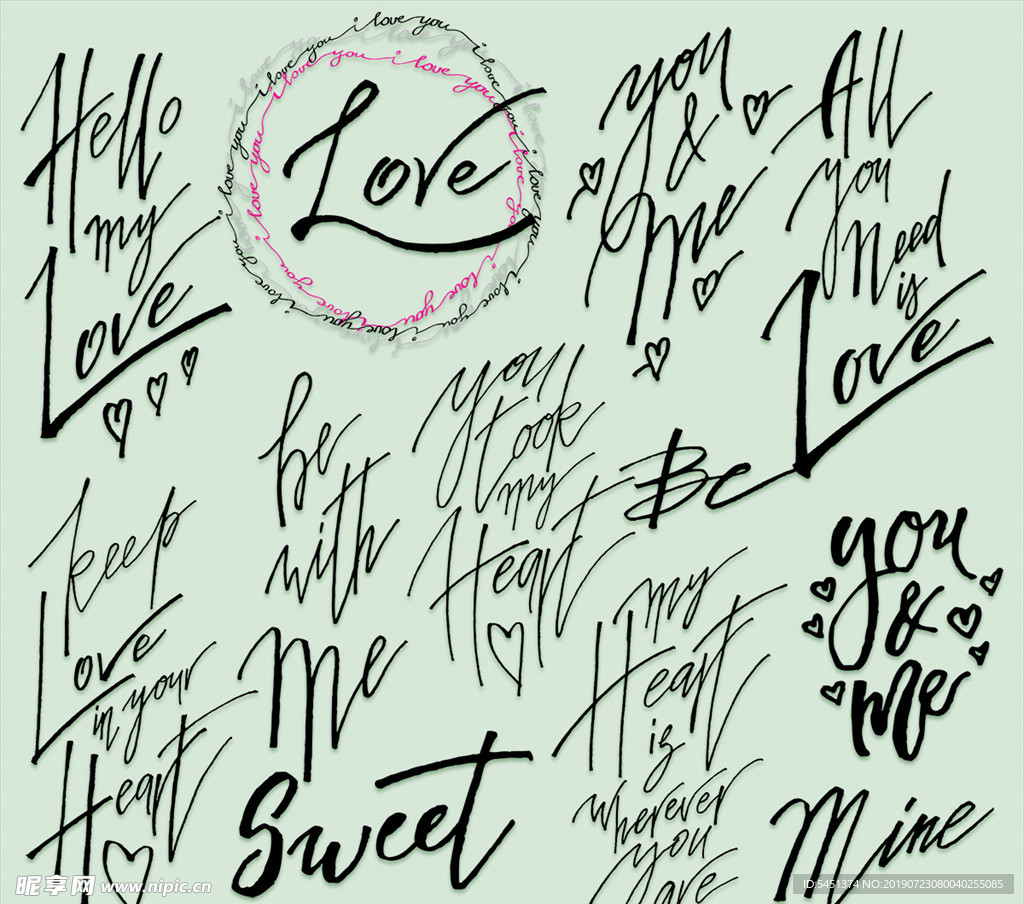 Hello
my
Love
i love you i love you i love you i love you i love you i love you i love you i love you
i love you i love you i love you i love you i love you i love you i love you
Love
you
&
me
All
you
Need
is
Love
be
with
Me
you
took
my
Heart
Be
Mine
keep
Love
in your
Heart
Sweet
my
Heart
is
wherever
you
are
you
&
me
昵享网 www.nipic.cn
ID:5451374 NO:20190723080040255085